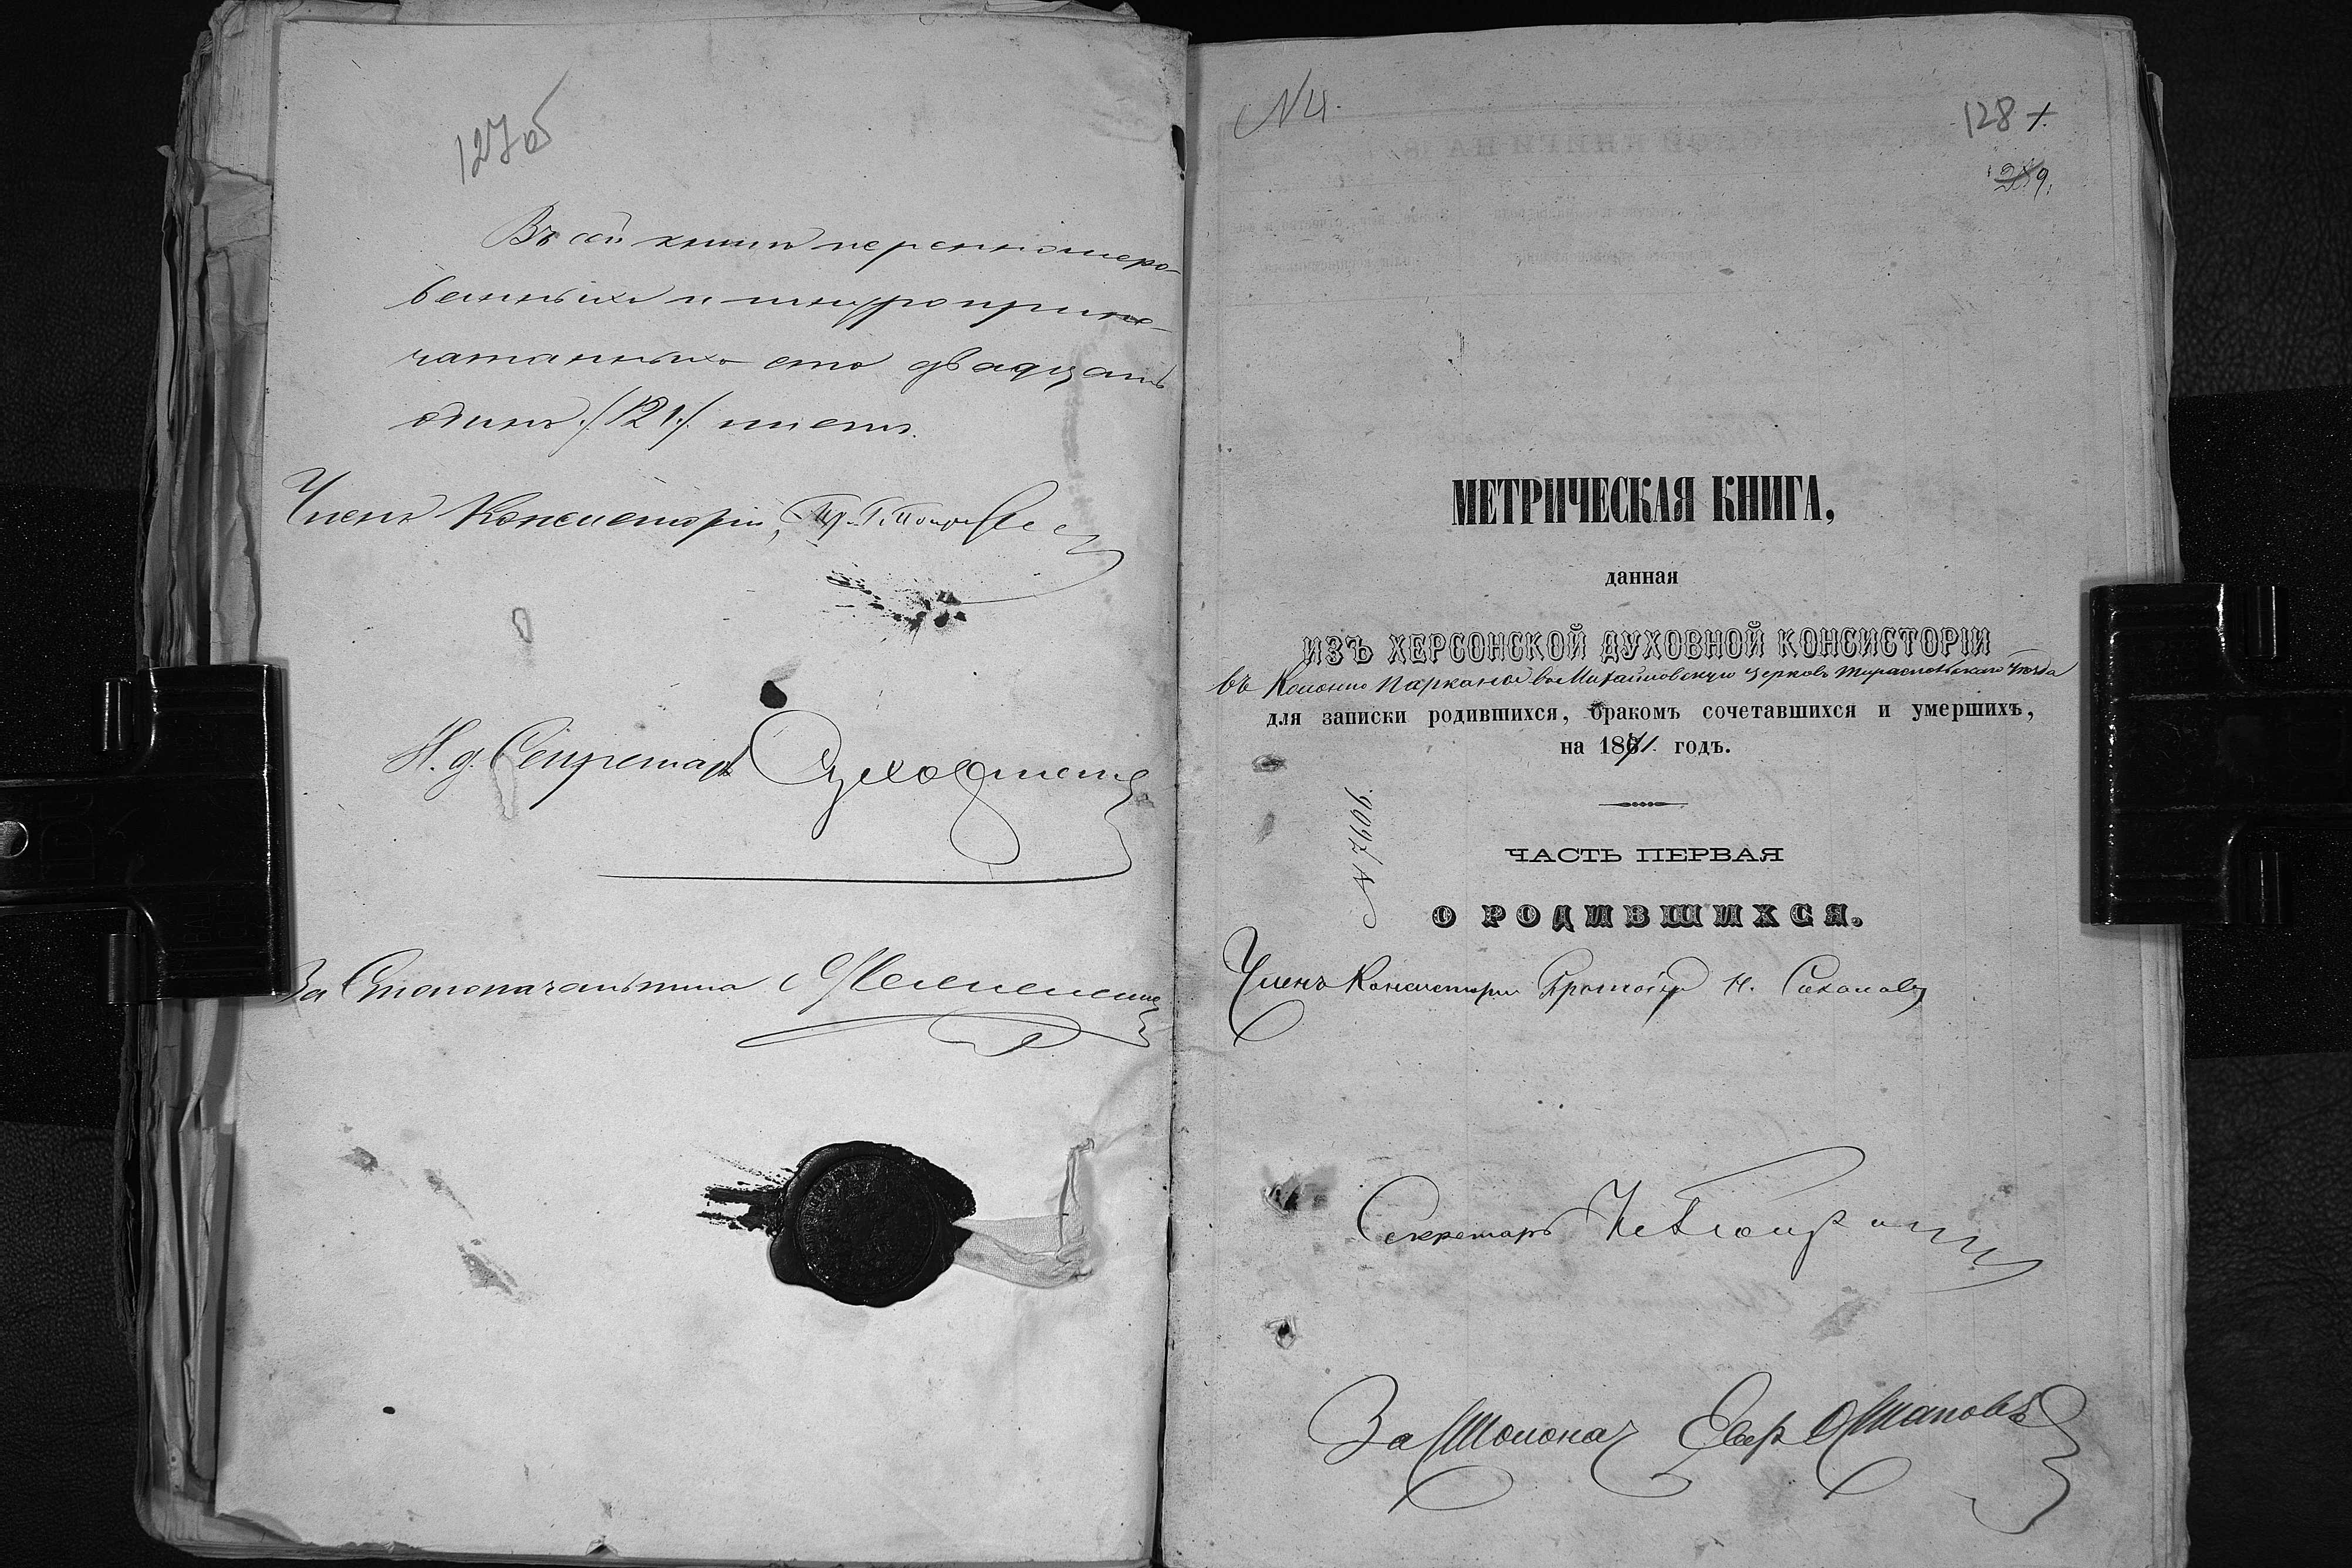 127об
Въ сей книгѣ перенномеро-
ванныхъ и шнуроприпе-
чатанныхъ сто двадцать
одинъ /121/ листъ.
Членъ Консисторіи,
И. д. Секретаря
За Столоначальника
N 4.
128 1.
МЕТРИЧЕСКАЯ КНИГА,
данная
ИЗЪ ХЕРСОНСКОЙ ДУХОВНОЙ КОНСИСТОРІИ
въ Колонію Парканы въ Михайловскую церковь Тираспольскаго уѣзда
для записки родившихся, бракомъ сочетавшихся и умершихъ,
на 1871. годъ.
N 7606.
ЧАСТЬ ПЕРВАЯ
О РОДИВШИХСЯ.
Членъ Консисторіи Протоіер
Секретарь
За Столонач